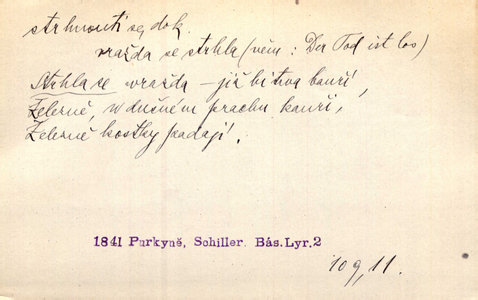 strhnouti se, dok.
vražda se strhla (něm: Der Tod ist los)
Strhla se vražda – již bitva bouří,
Železné, w dušném prachu kouří,
Železné kostky padají.
1841 Purkyně, Schiller. Bás. Lyr. 2
109, 11.